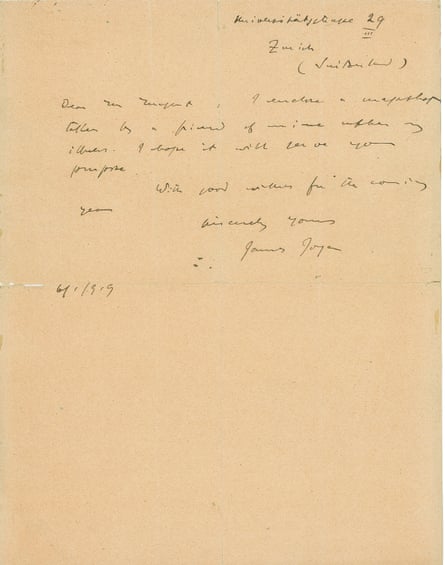 Universitätsstrasse 29
III
Zurich
(Switzerland)
Dear Mr , I enclose a snapshot
taken by a friend of mine after my
illness. I hope it will serve your
purpose.
With good wishes for the coming
year
Sincerely yours
James Joyce